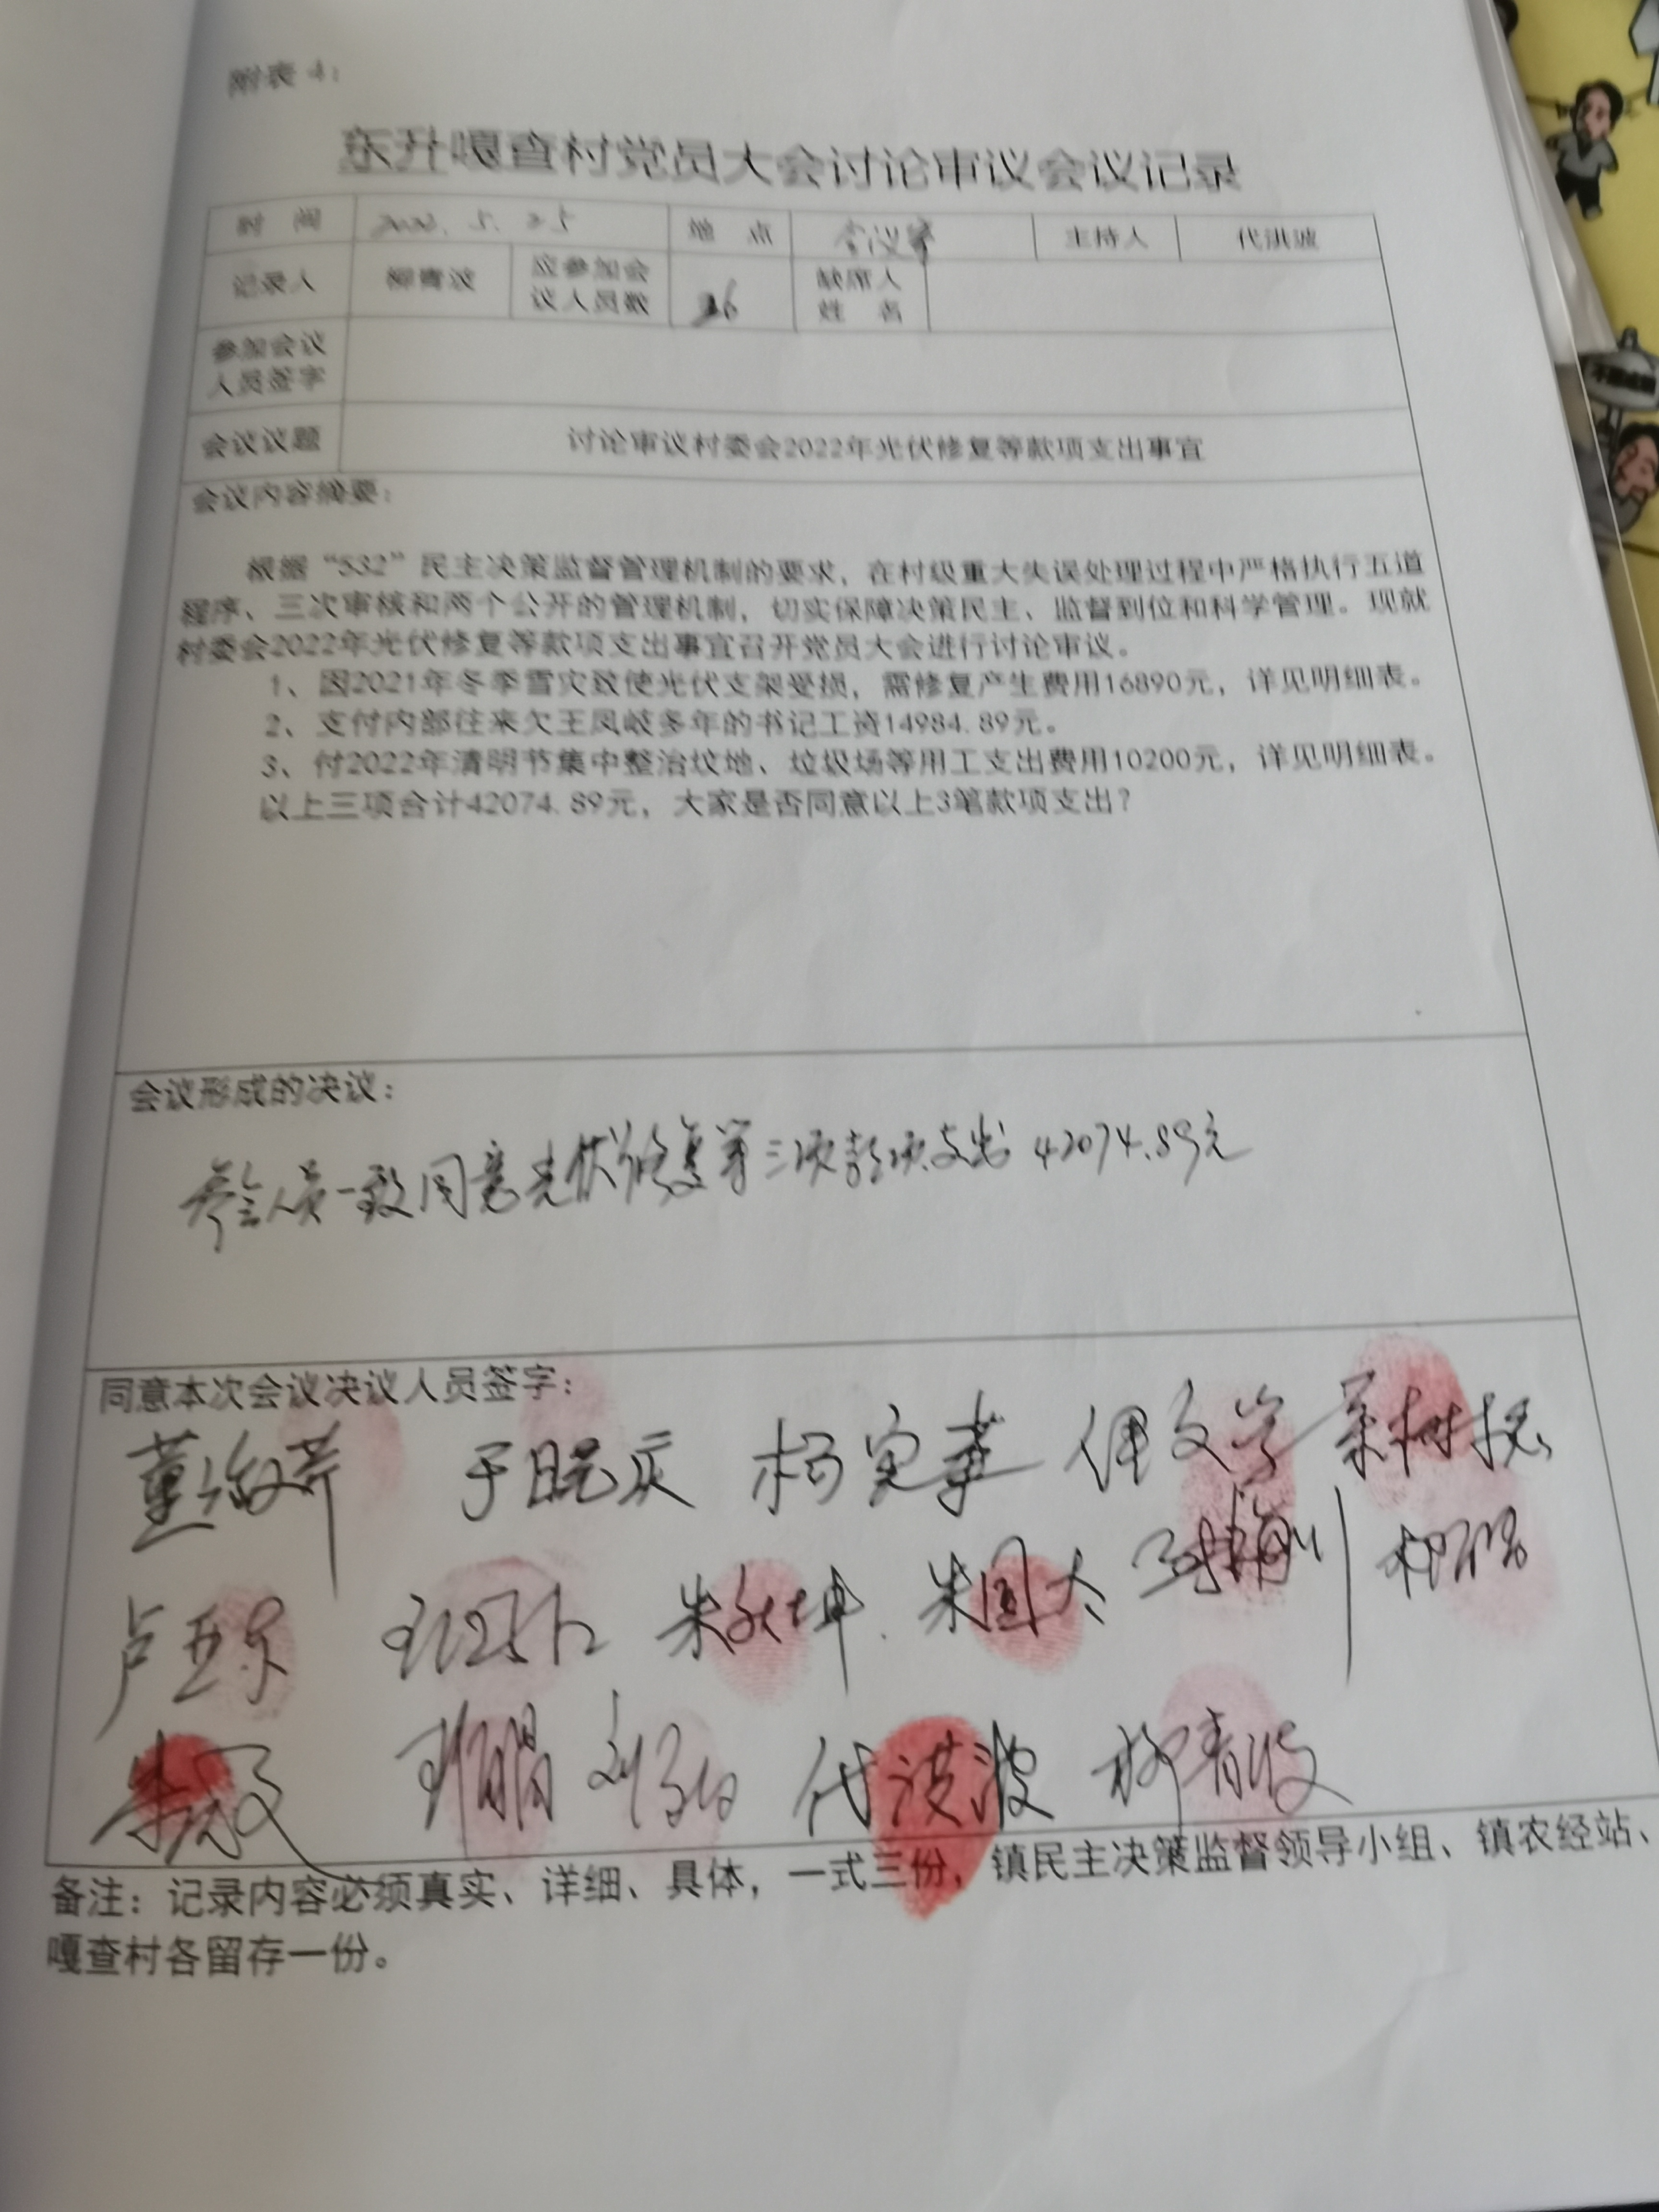 附表4：
东升嘎查村党员大会讨论审议会议记录
时 间 地 点 会议室 主持人 代洪波
记录人 柳青波 应参加会议人员数 缺席人姓 名
参加会议人员签字
会议议题 讨论审议村委会2022年光伏修复等款项支出事宜
会议内容摘要：
根据“532”民主决策监督管理机制的要求，在村级重大失误处理过程中严格执行五道
程序、三次审核和两个公开的管理机制，切实保障决策民主、监督到位和科学管理。现就
村委会2022年光伏修复等款项支出事宜召开党员大会进行讨论审议。
1、因2021年冬季雪灾致使光伏支架受损，需修复产生费用16890元，详见明细表。
2、支付内部往来欠王凤岐多年的书记工资14984.89元。
3、付2022年清明节集中整治坟地、垃圾场等用工支出费用10200元，详见明细表。
以上三项合计42074.89元，大家是否同意以上3笔款项支出？
会议形成的决议：
参会人员一致同意光伏修复等三项款项支出42074.89元
同意本次会议决议人员签字：
于晓庆
朱国太
代洪波 柳青波
备注：记录内容必须真实、详细、具体，一式三份，镇民主决策监督领导小组、镇农经站、
嘎查村各留存一份。